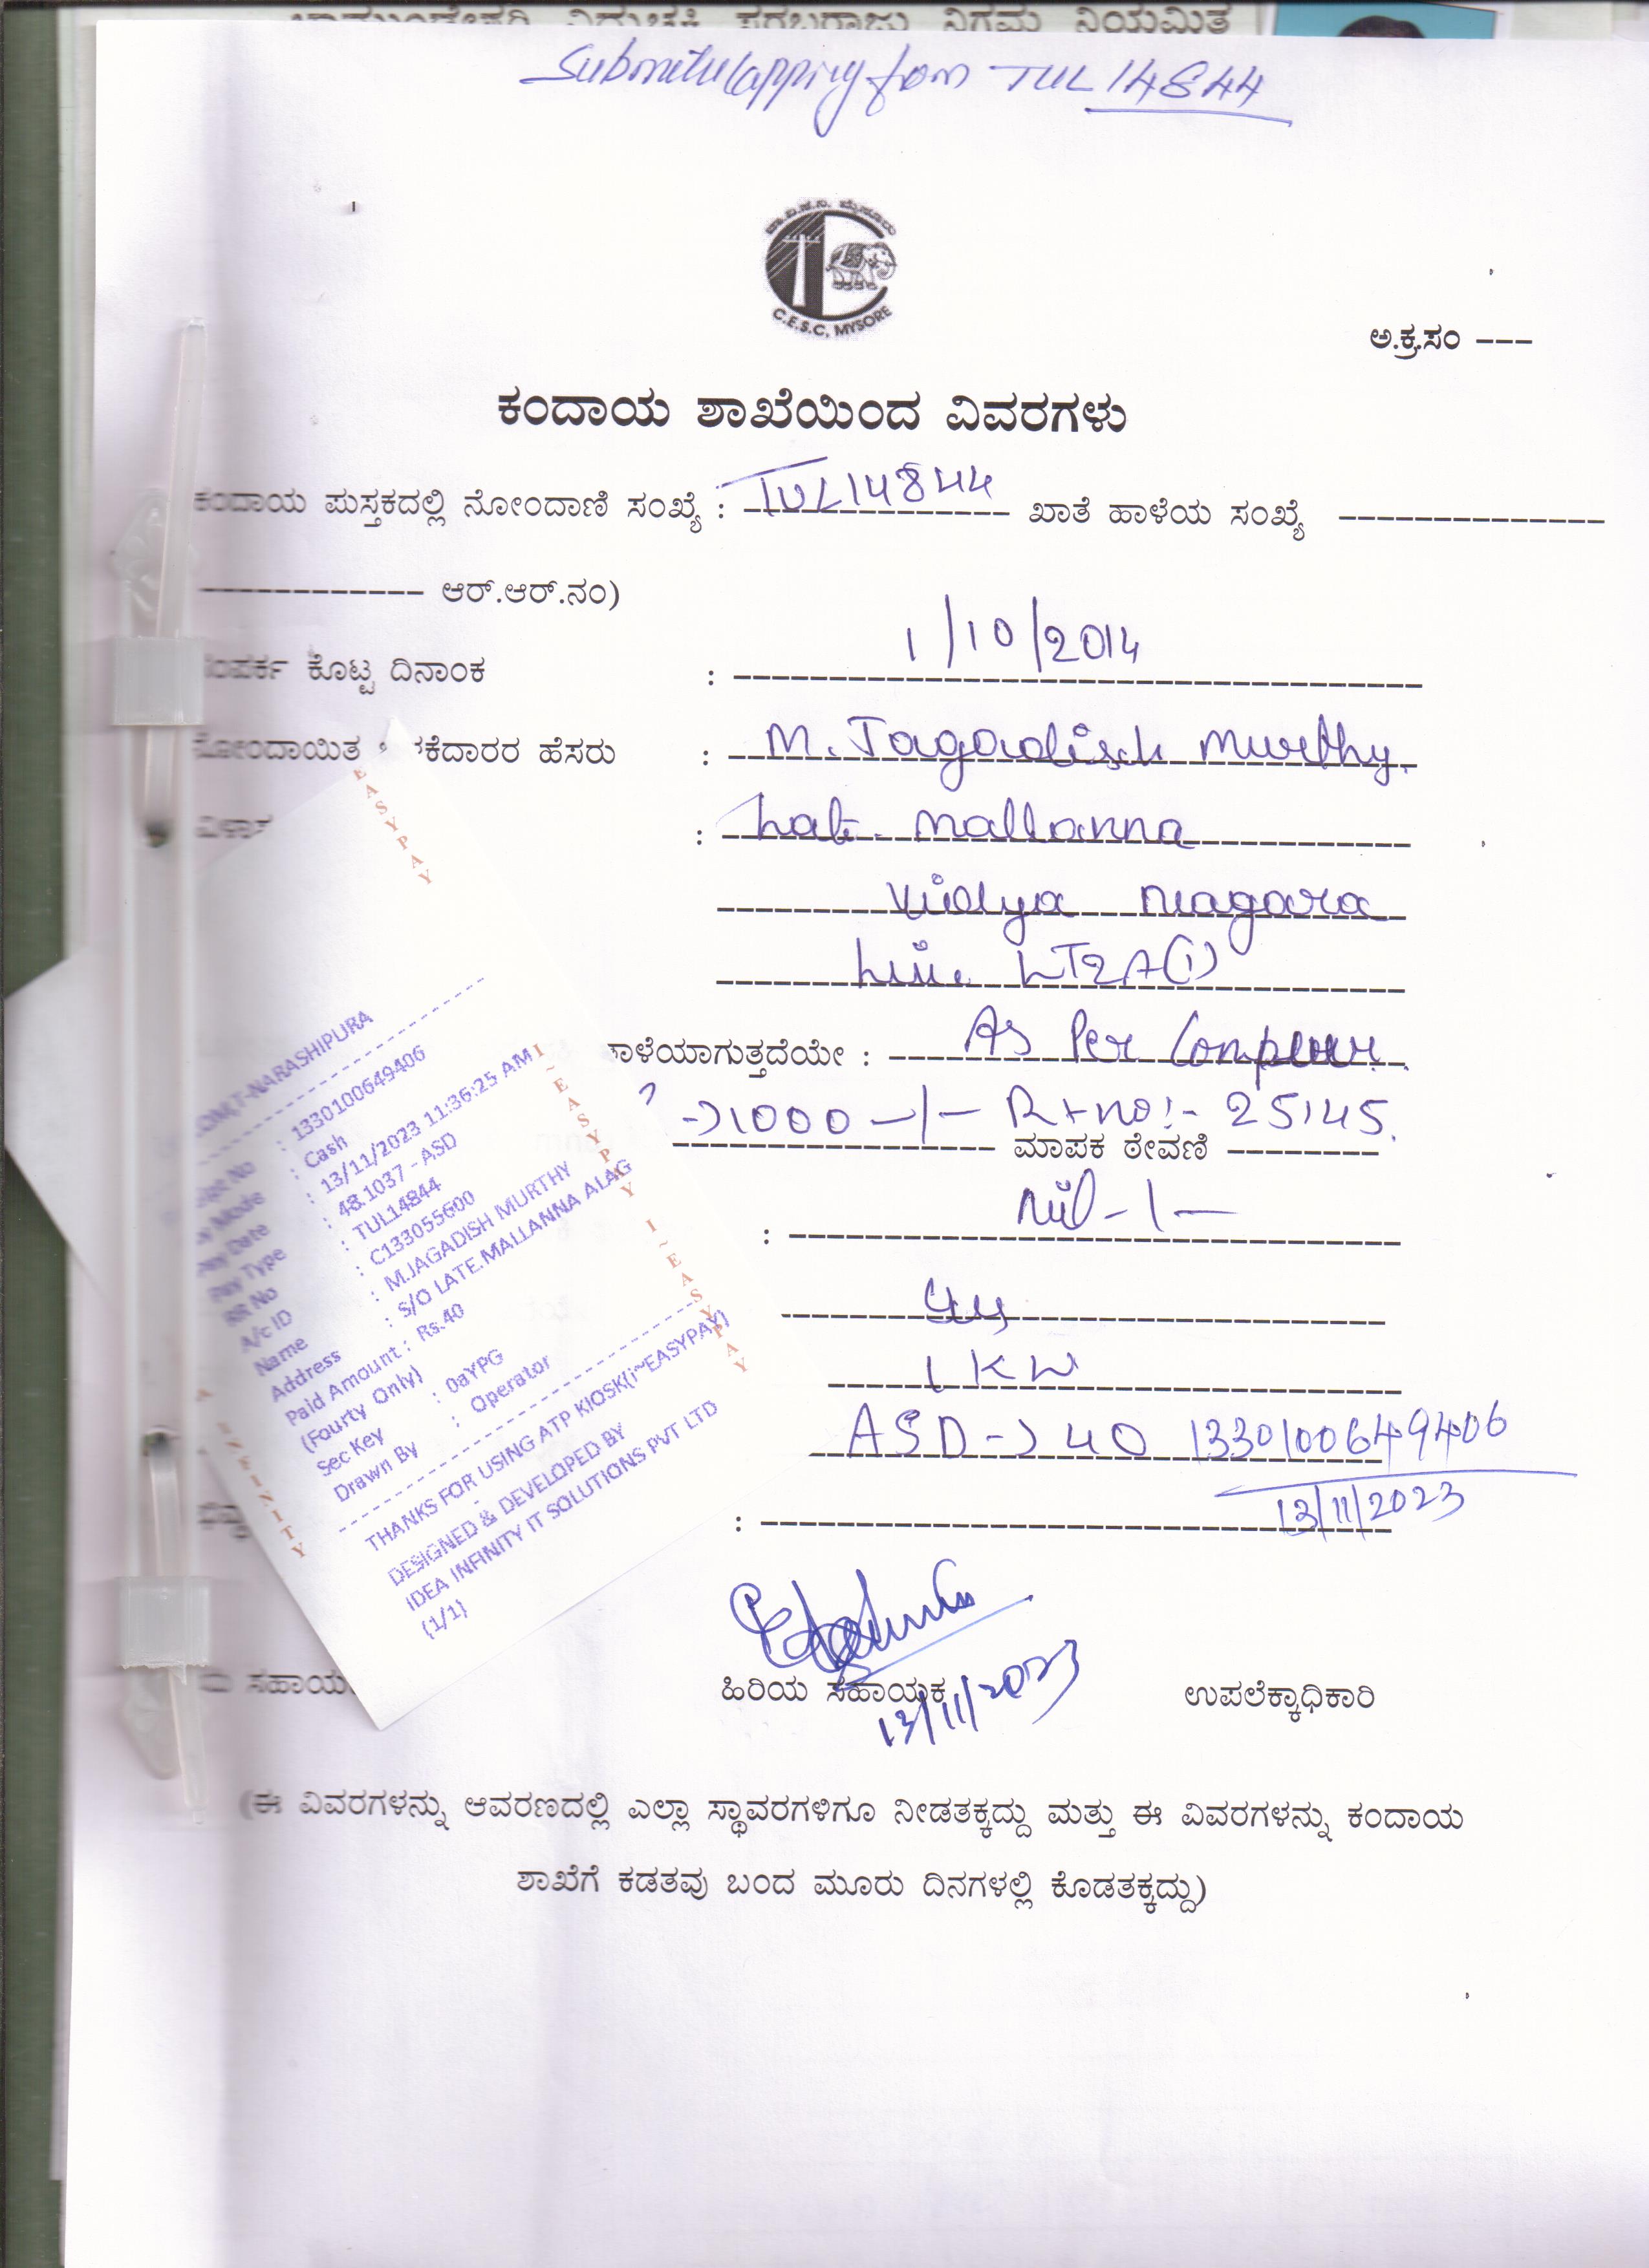 TUL 14844
ಚಾ.ವಿ.ಸ.ನಿ. ಮೈಸೂರು
C.E.S.C, MYSORE
ಅ.ಕ್ರ.ಸಂ ---
ಕಂದಾಯ ಶಾಖೆಯಿಂದ ವಿವರಗಳು
ಕಂದಾಯ ಪುಸ್ತಕದಲ್ಲಿ ನೋಂದಾಣಿ ಸಂಖ್ಯೆ : TUL14844 ಖಾತೆ ಹಾಳೆಯ ಸಂಖ್ಯೆ --------------
------------ ಆರ್.ಆರ್.ನಂ)
ಕೊಟ್ಟ ದಿನಾಂಕ : 1/10/2014
ನೋಂದಾಯಿತ ಹೆಸರು : M. Jagadisch Murthy.
: Late. Mallanna
Vidya Nagara
LT2A(i)
: As Per
->1000 -/- R+no:- 25145.
ಮಾಪಕ ಠೇವಣಿ --------
: Nil -/-
1 KW
ASD -> 40 1330100649406
: 13/11/2023
T-NARASHIPURA
: 1330100649406
Mode : Cash
Pay Date : 13/11/2023 11:36:25 AM
Pay Type : 48.1037 - ASD
RR No : TUL14844
A/c ID : C133055600
Name : M.JAGADISH MURTHY
Address : S/O LATE.MALLANNA ALAG
Paid Amount : Rs.40
(Fourty Only)
Sec Key : 0aYPG
Drawn By : Operator
THANKS FOR USING ATP KIOSK(i~EASYPAY)
DESIGNED & DEVELOPED BY
IDEA INFINITY IT SOLUTIONS PVT LTD
(1/1)
EASYPAY
I~EASYPAY I~EASYPAY
INFINITY
ಹಿರಿಯ ಸಹಾಯಕ ಉಪಲೆಕ್ಕಾಧಿಕಾರಿ
13/11/2023
(ಈ ವಿವರಗಳನ್ನು ಆವರಣದಲ್ಲಿ ಎಲ್ಲಾ ಸ್ಥಾವರಗಳಿಗೂ ನೀಡತಕ್ಕದ್ದು ಮತ್ತು ಈ ವಿವರಗಳನ್ನು ಕಂದಾಯ
ಶಾಖೆಗೆ ಕಡತವು ಬಂದ ಮೂರು ದಿನಗಳಲ್ಲಿ ಕೊಡತಕ್ಕದ್ದು)